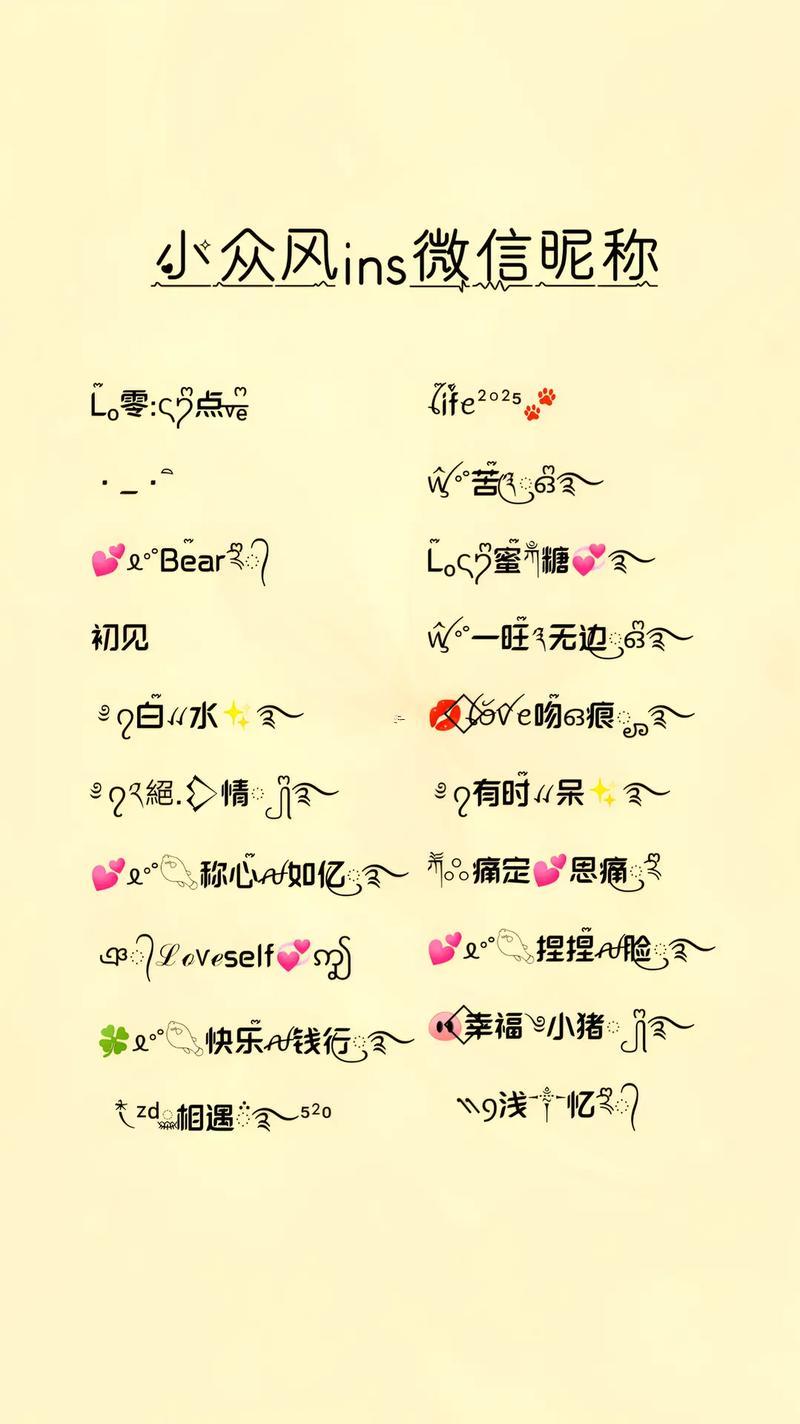 小众风ins微信昵称
L₀零:ςƿ点ve
Life²⁰²⁵🐾
· _ ·
ŵ°°苦ༀ
💕 Bear
L₀ςƿ蜜糖💞
初见
ŵ°°一旺无边
白〃水✨
💋Love吻ଓ痕
絕.情
有时〃呆✨
💕称心如亿
痛定💕思痛
Loveself💞
💕捏捏脸
🍀快乐钱行
🐽幸福小猪
zd相遇⁵²⁰
浅忆